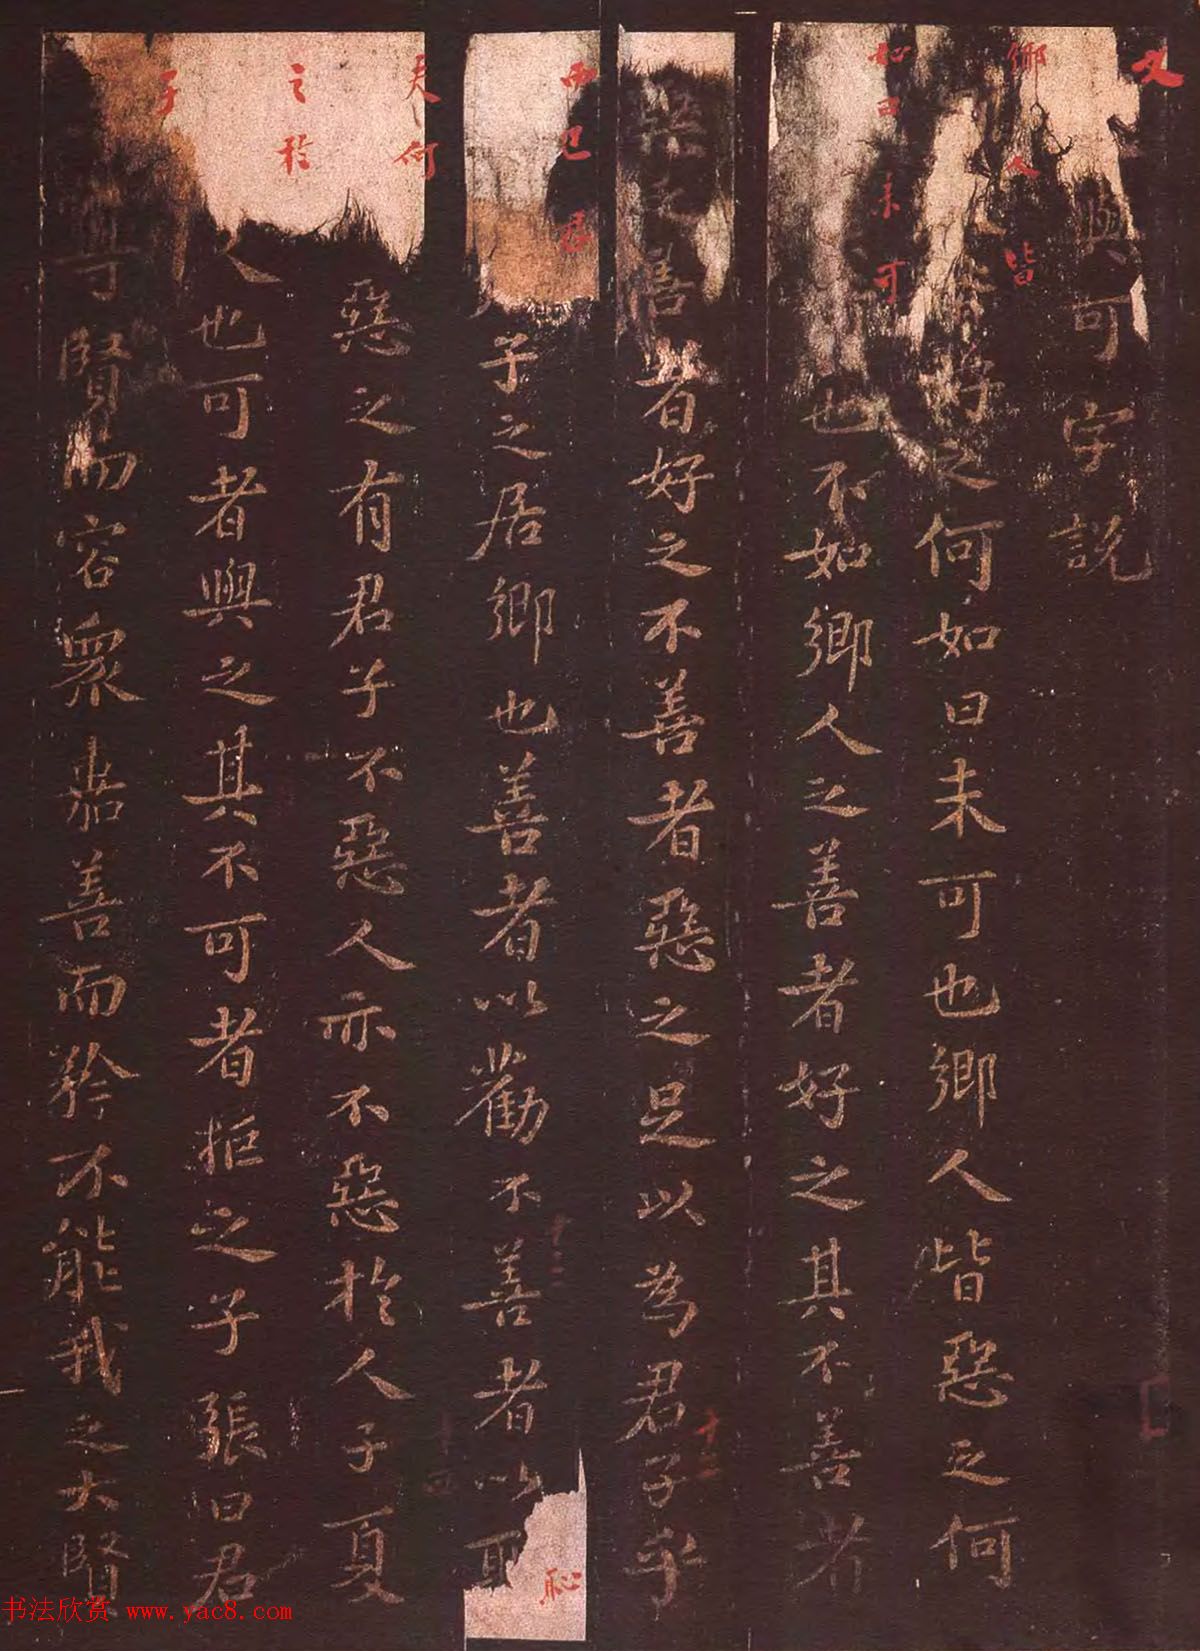 文與可字說
鄉人皆好之何如曰未可也鄉人皆惡之何
如曰未可也不如鄉人之善者好之其不善者
惡之善者好之不善者惡之足以為君子乎
而已君子之居鄉也善者以勸不善者以恥
夫何惡之有君子不惡人亦不惡於人子夏
之於人也可者與之其不可者拒之子張曰君
子尊賢而容眾嘉善而矜不能我之大賢
书法欣赏 www.yac8.com